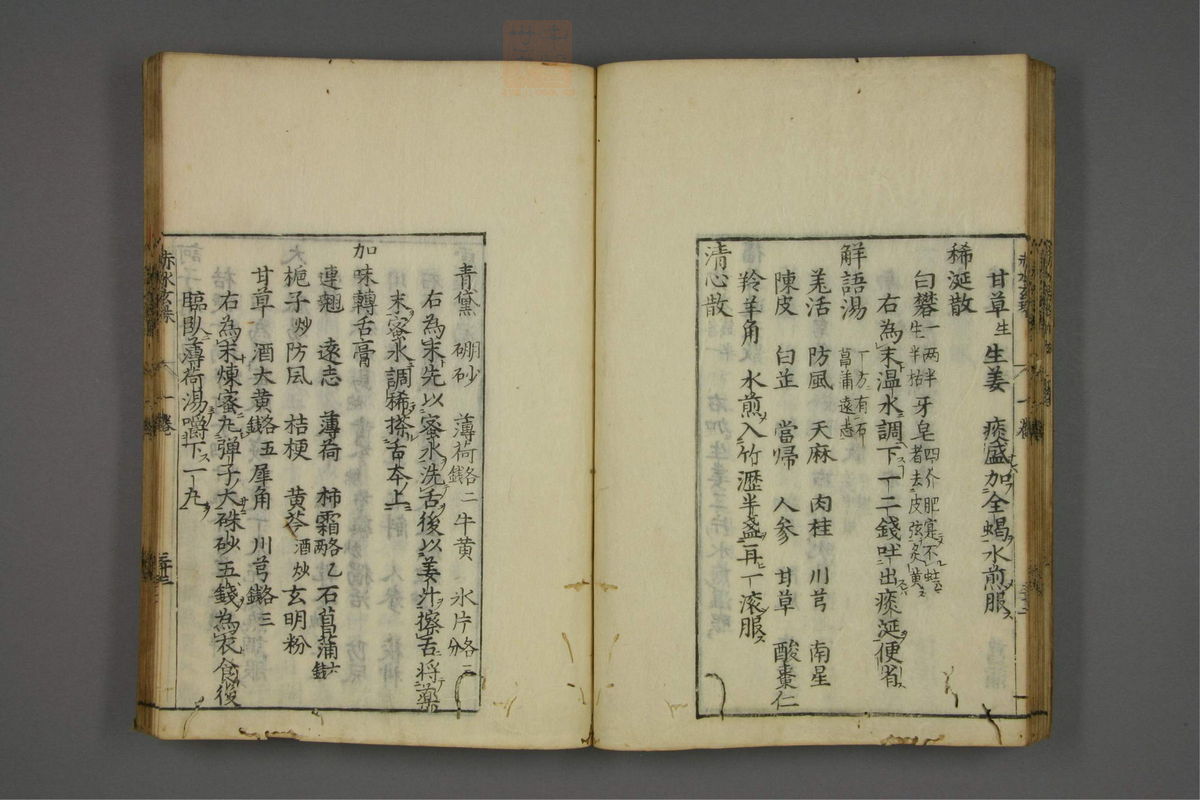 甘草生 生姜 痰盛加全蝎水煎服
稀涎散
白礬一两半生半枯 牙皂四介肥実不蛀者去皮弦炙黄
右為末温水調下一二錢吐出痰涎便省
解語湯 一方有石菖蒲遠志
羌活 防風 天麻 肉桂 川芎 南星
陳皮 白芷 當帰 人参 甘草 酸棗仁
羚羊角 水煎入竹瀝半盞再一滚服
清心散
青黛 硼砂 薄荷各二錢 牛黄 氷片各三分
右為末先以蜜水洗舌後以姜汁擦舌将藥
末蜜水調稀搽舌本上
加味轉舌膏
連翹 遠志 薄荷 柿霜各乙两 石菖蒲六錢
梔子炒 防風 桔梗 黄芩酒炒 玄明粉
甘草 酒大黄各五錢 犀角 川芎各三錢
右為末煉蜜丸弾子大硃砂五錢為衣食後
臨臥薄荷湯嚼下一丸